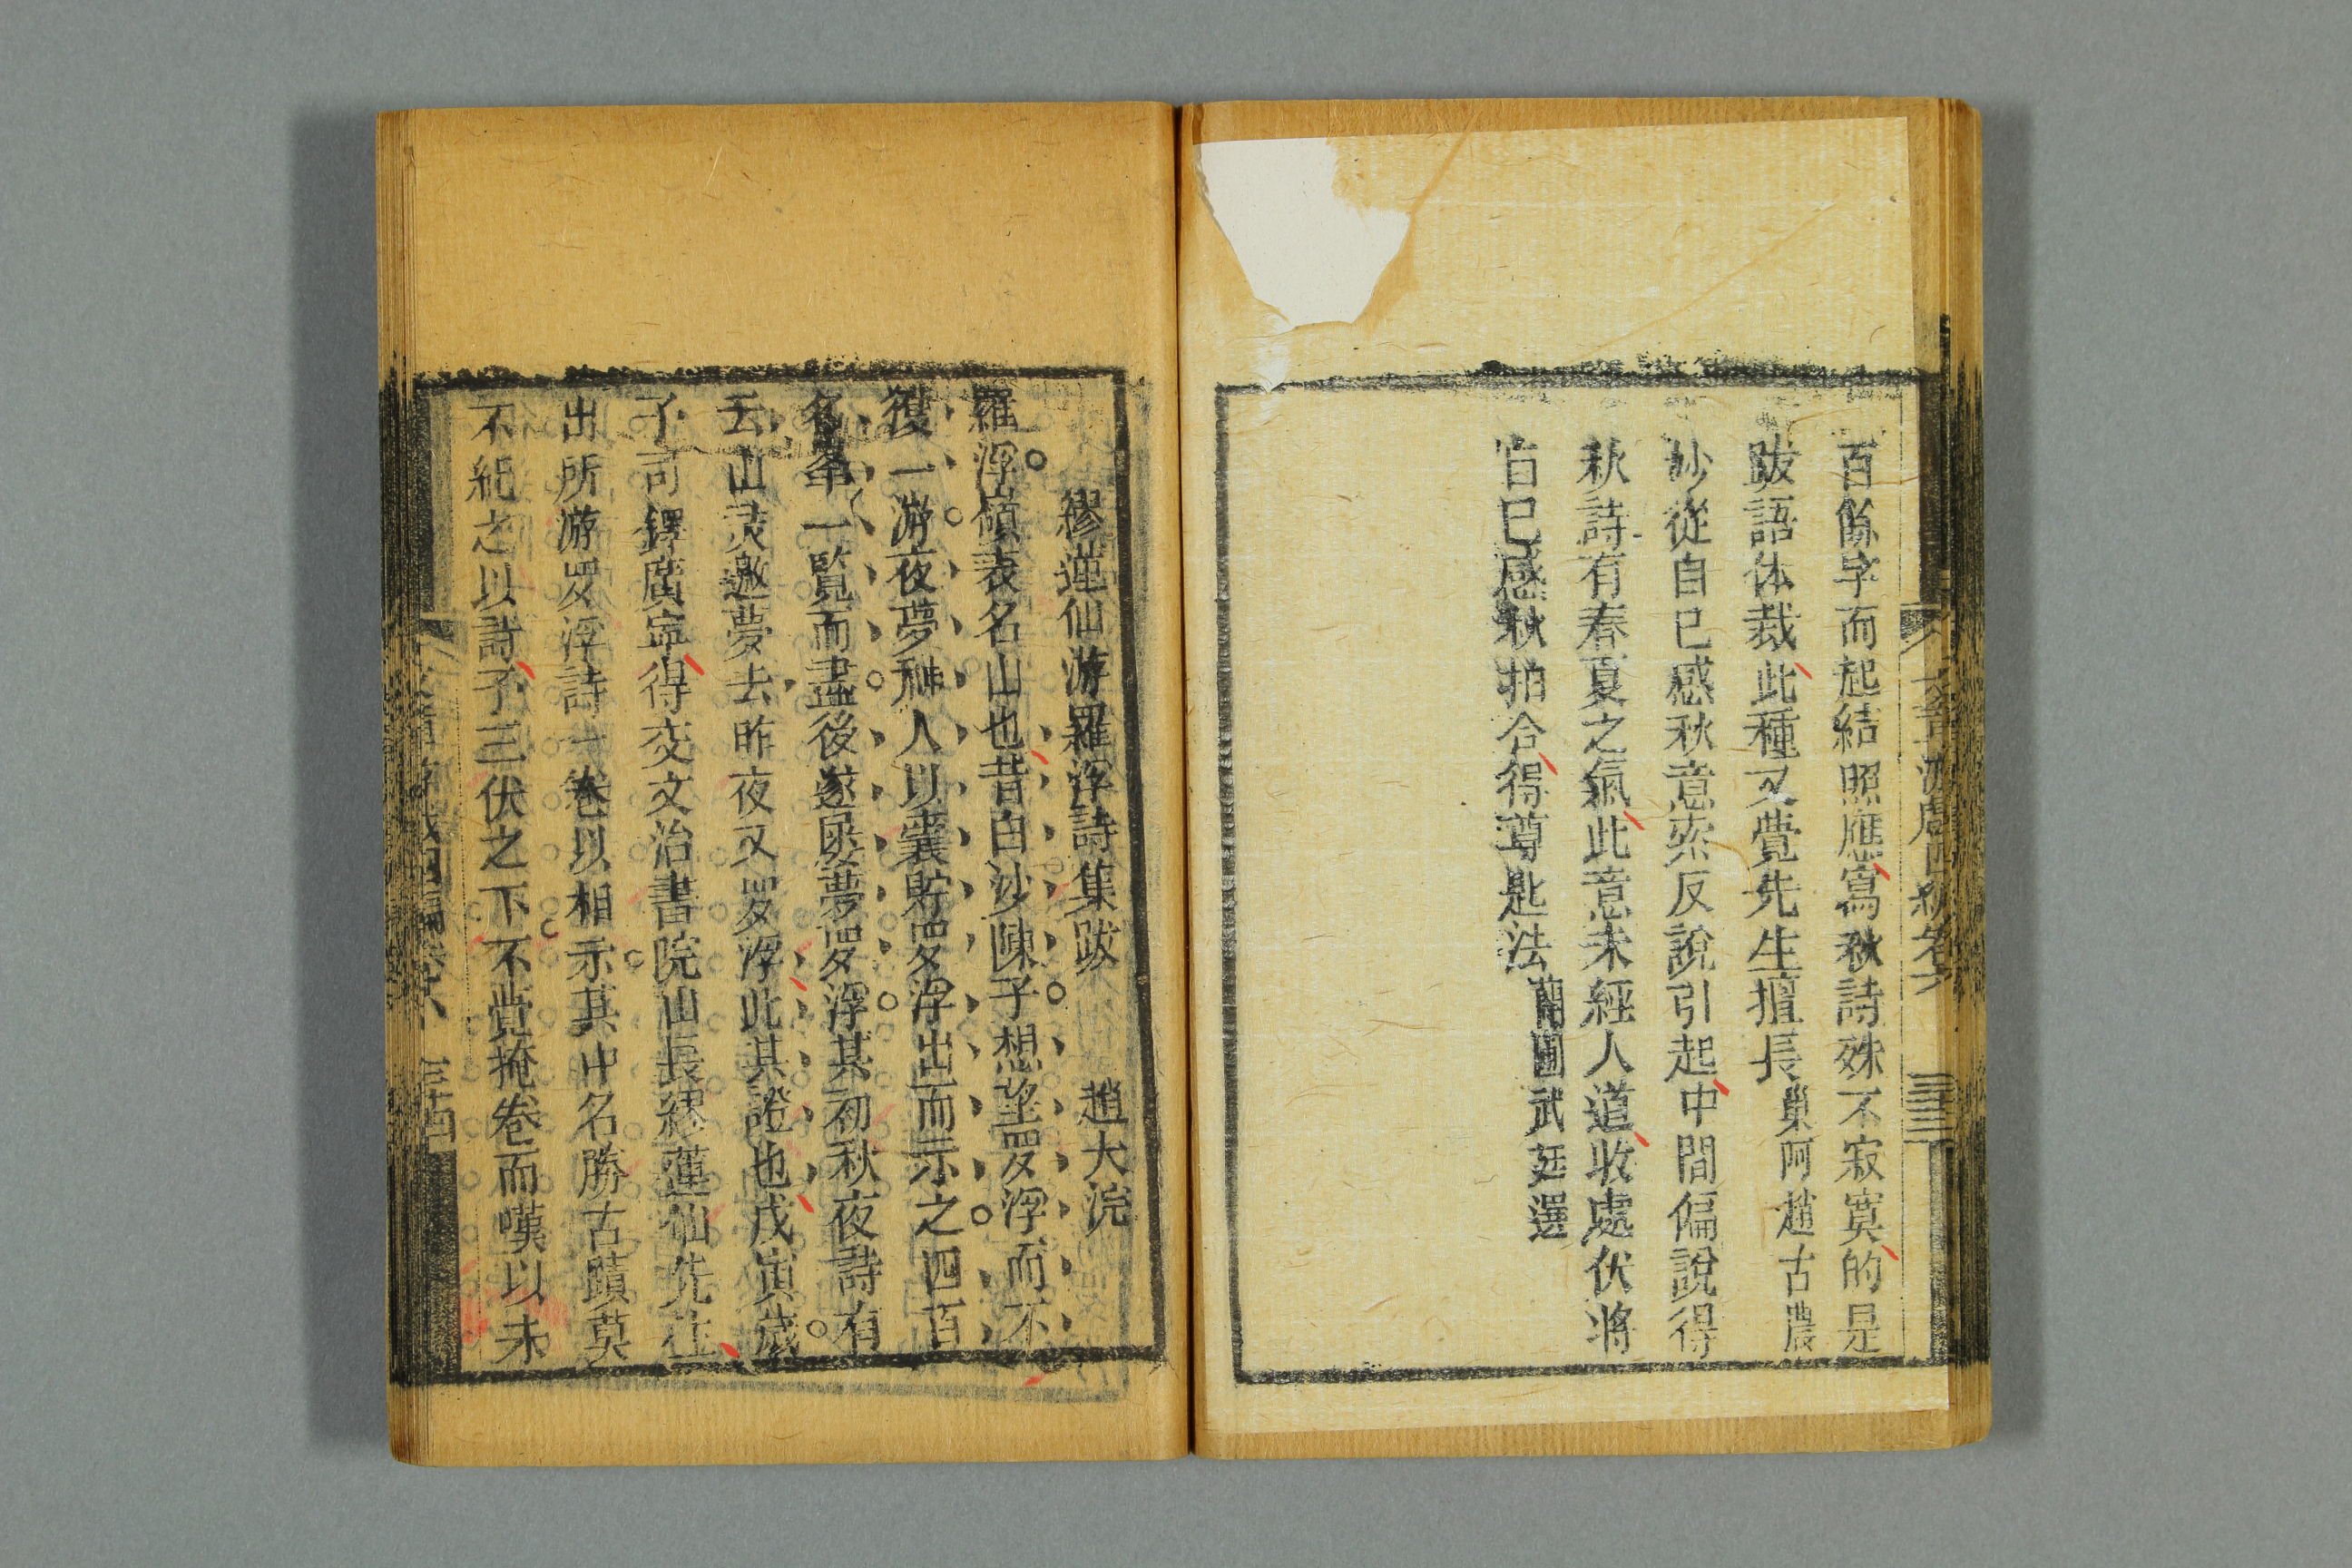 百餘字而起結照應寫秋詩殊不寂寞的是
跋語体裁此種又覺先生擅長 巢阿趙古農
妙從自已感秋意索反說引起中間偏說得
秋詩有春夏之氣此意未經人道收處伏將
自已感秋拍合得尊匙法 蘭圃武廷選
三三
繆蓮仙游羅浮詩集跋 趙大浣
羅浮嶺表名山也昔白沙陳子想望罗浮而不
獲一游夜夢神人以囊貯罗浮出而示之四百
名峯一覧而盡後遂屡夢罗浮其初秋夜詩有
云山灵邀夢去昨夜又罗浮此其證也戊寅歲
予司鐸廣寧得交文治書院山長繆蓮仙先生
出所游罗浮詩一卷以相示其中名勝古蹟莫
不紀之以詩予三伏之下不覺掩卷而嘆以未
三十四